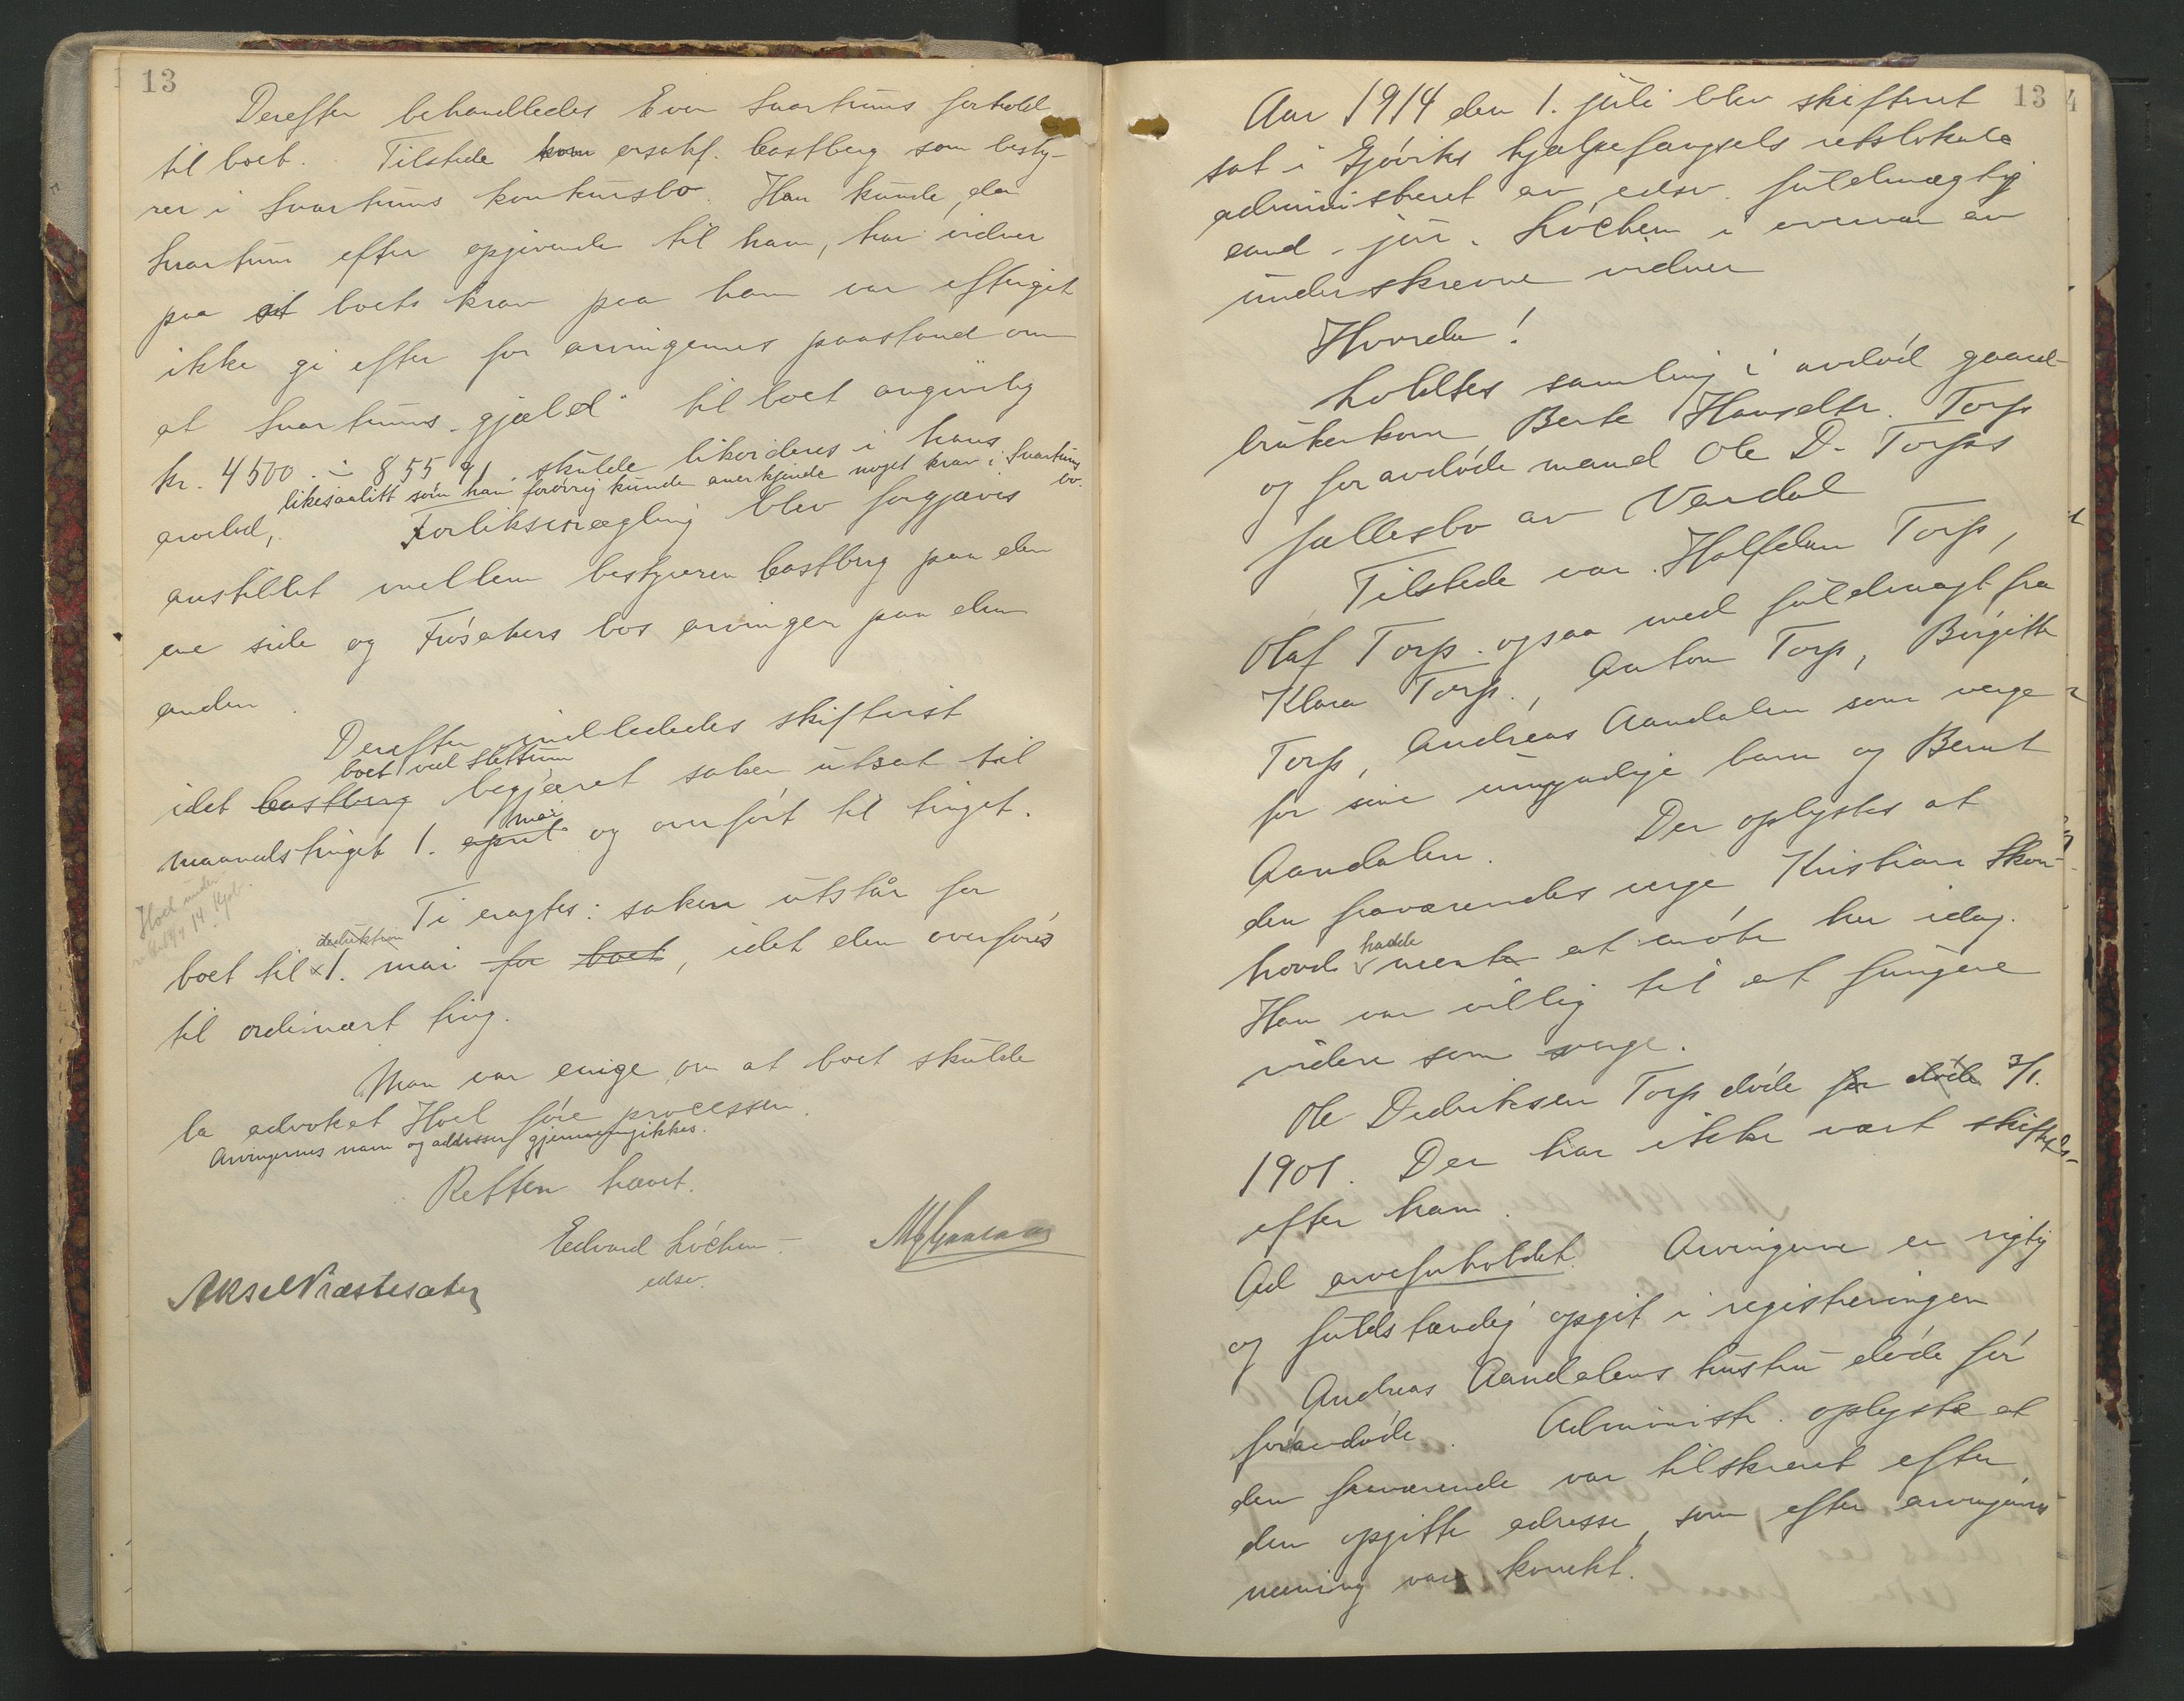 13
Derefter behandledes Even Svartums forhold
til boet. Tilstede kom ersakf. Castberg som besty-
rer i Svartums konkursbo. Han kunde, da
Svartum efter opgivende til ham, har vidner
paa at boets krav paa ham var eftergit
ikke gi efter for arvingernes paastand om
at Svartums "gjæld" til boet angivelig
kr. 4500 ÷ 855 91 skulde likvideres i hans
likesaalitt som han forøvrig kunde anerkjende noget krav i Svartums bo.
arvelod, Forliksmægling blev forgjæves
anstillet mellem bestyreren Castberg paa den
ene side og Frøsakers bos arvinger paa den
anden.
Derefter indlededes skiftetvist
boet ved Slettum
idet Castberg begjæret saken utsat til
mai
maanedstinget 1. april og overført til tinget.
Hoel under
Ti eragtes: saken utstår for
deduktion
boet til 1. mai for boet, idet den overføres
til ordinært ting.
Man var enige om at boet skulde
la advokat Hoel føre processen.
Arvingernes navn og addresser gjennemgikkes.
Retten hævet.
Edvard Løchen
edsv.
Aksel Næstesæter
13
Aar 1914 den 1. juli blev skifteret
sat i Gjøviks hjælpefængsels retslokale
administreret av edsv. fuldmægtig
cand. jur. Løchen i overvær av
underskrevne vidner
Hvorda!
holdtes samling i avdød gaard-
brukerkone Berte Hansdtr. Torp
og foravdøde mand Ole D. Torps
fællesbo av Vardal
Tilstede var Halfdan Torp,
Olaf Torp ogsaa med fuldmagt fra
Klara Torp, Anton Torp, Birgitte
Torp, Andreas Aandalen som verge
for sine umyndige barn og Bernt
Aandalen. Der oplystes at
den fraværendes verge Kristian Skon-
hovd hadde ment at møte her idag.
Han var villig til at fungere
videre som verge.
Ole Didriksen Torp døde før døde 3/1.
1901. Der har ikke vært skiftet
efter ham.
Ad arveforholdet. Arvingerne er rigtig
og fuldstændig opgit i registreringen
Andreas Aandalens hustru døde før
foravdøde. Administr. oplyste at
den fraværende var tilskrevet efter
den opgitte adresse, som efter arvingernes
mening var korrekt.